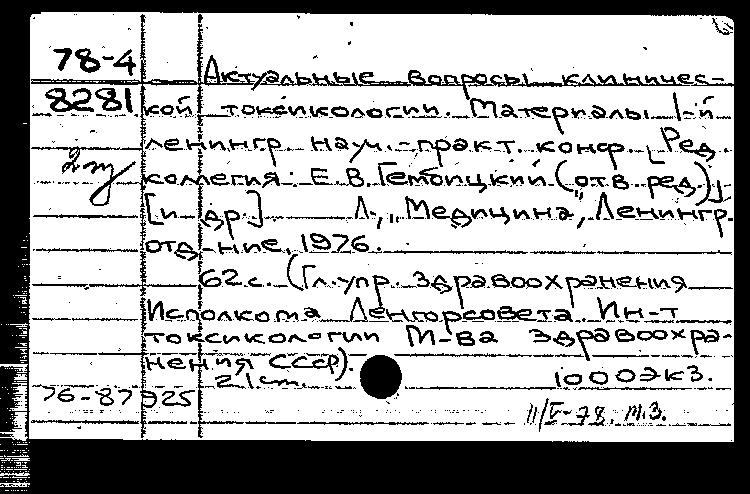 78-4
8281
Актуальные вопросы клиничес-
кой токсикологии. Материалы 1-й
ленингр. науч.-практ. конф. [Ред.
коллегия: Е.В. Гембицкий (отв. ред.)
[и др.] Л., "Медицина", Ленингр.
отд-ние, 1976.
62 с. (Гл. упр. здравоохранения
Исполкома Ленгорсовета. Ин-т
токсикологии М-ва здравоохра-
нения СССР).
21 cm. 1000 экз.
76-87925
11/V-78. М.З.